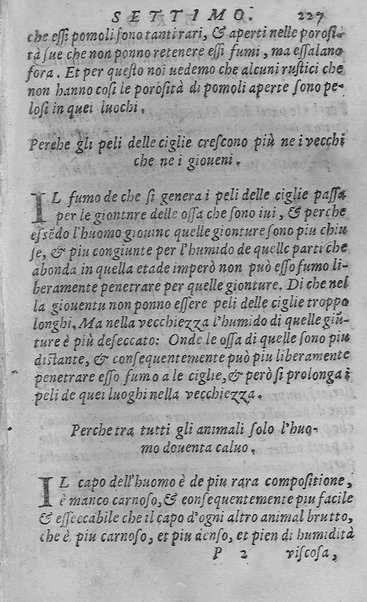 SETTIMO. 227
che essi pomoli sono tanti rari, & aperti nelle porosi-
tà sue che non ponno retenere essi fumi, ma essalano
fora. Et per questo noi uedemo che alcuni rustici che
non hanno cosi le porosità di pomoli aperte sono pe-
losi in quei luochi.
Perche gli peli delle ciglie crescono più ne i vecchi
che ne i gioueni.
IL fumo de che si genera i peli delle ciglie passa
per le gionture delle ossa che sono iui, & perche
essẽdo l'huomo giouine quelle gionture sono piu chiu
se, & piu congiunte per l'humido de quelle parti che
abonda in quella etade imperò non può esso fumo li-
beramente penetrare per quelle gionture. Di che nel
la giouentu non ponno essere peli delle ciglie troppo
longhi. Ma nella vecchiezza l'humido di quelle giũ-
ture è più deseccato: Onde le ossa di quelle sono piu
distante, & consequentemente può piu liberamente
penetrare esso fumo a le ciglie, & però si prolonga i
peli de quei luoghi nella vecchiezza.
Perche tra tutti gli animali solo l'huo-
mo douenta caluo.
IL capo dell'huomo è de piu rara compositione,
è manco carnoso, & consequentemente piu facile
& esseccabile che il capo d'ogni altro animal brutto,
che è più carnoso, et piu denso, et pien di humidità
P 2 viscosa,